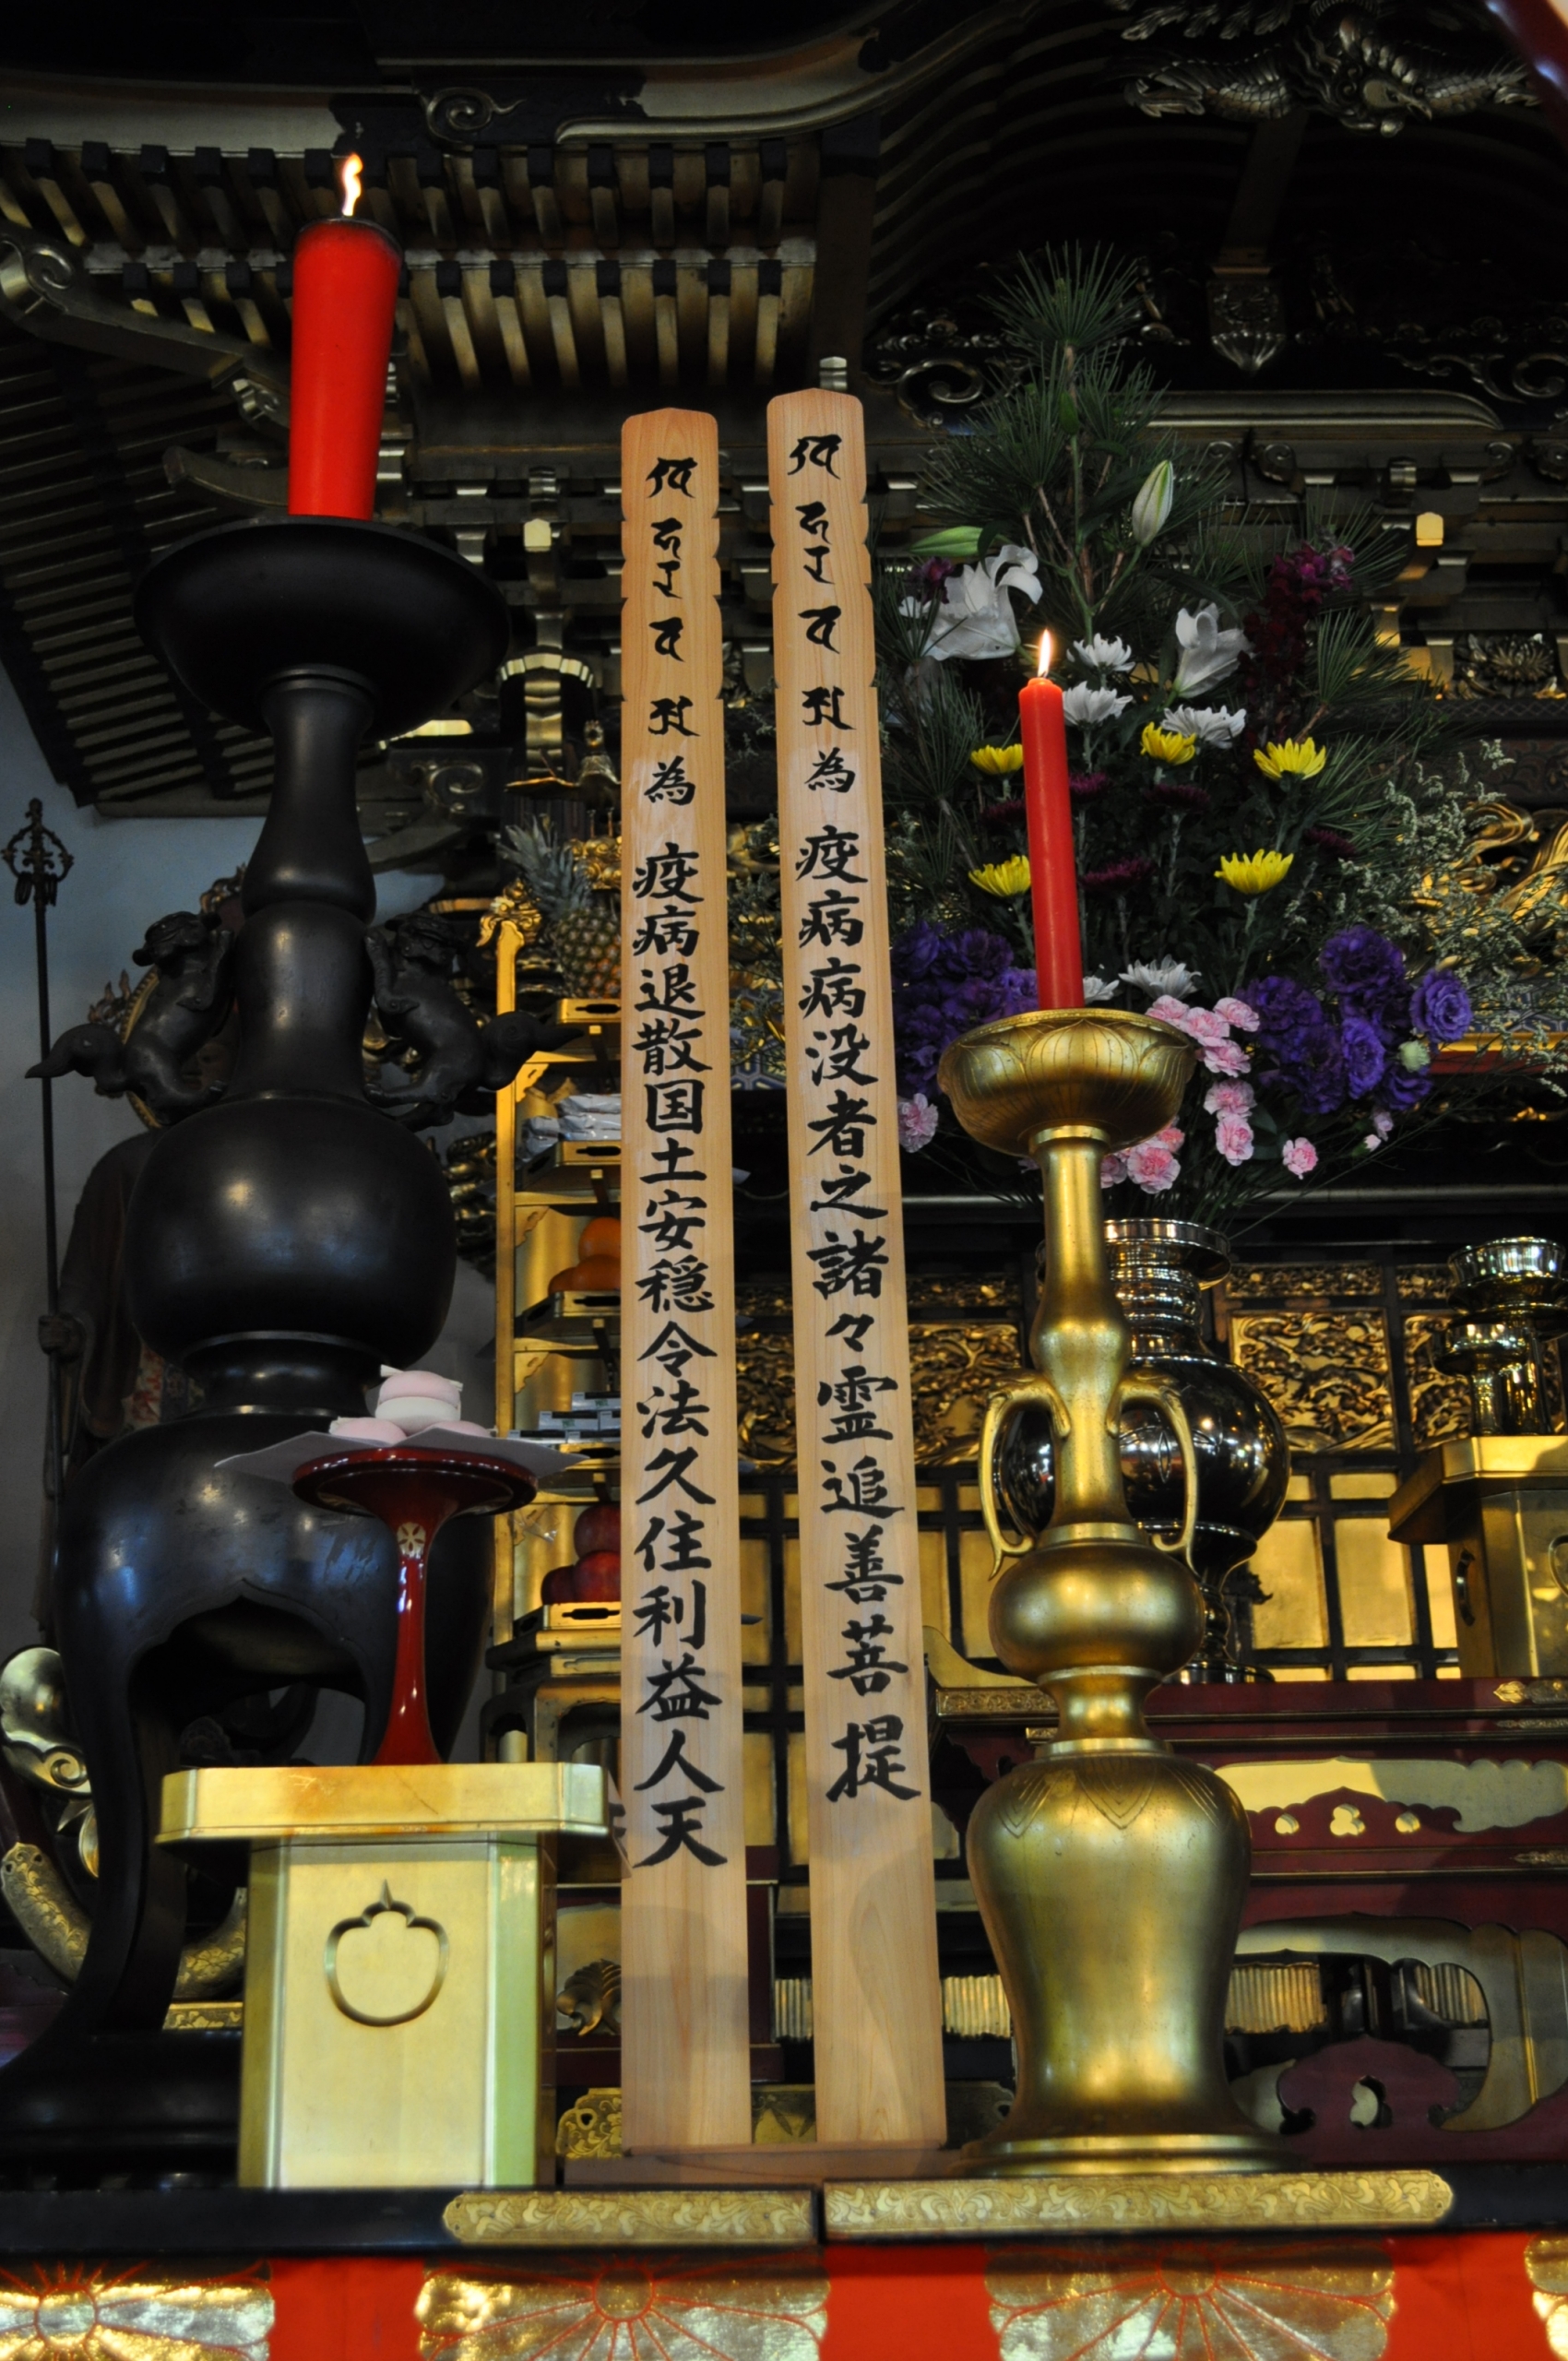 為 疫病病没者之諸々霊追善菩提
為 疫病退散国土安穏令法久住利益人天